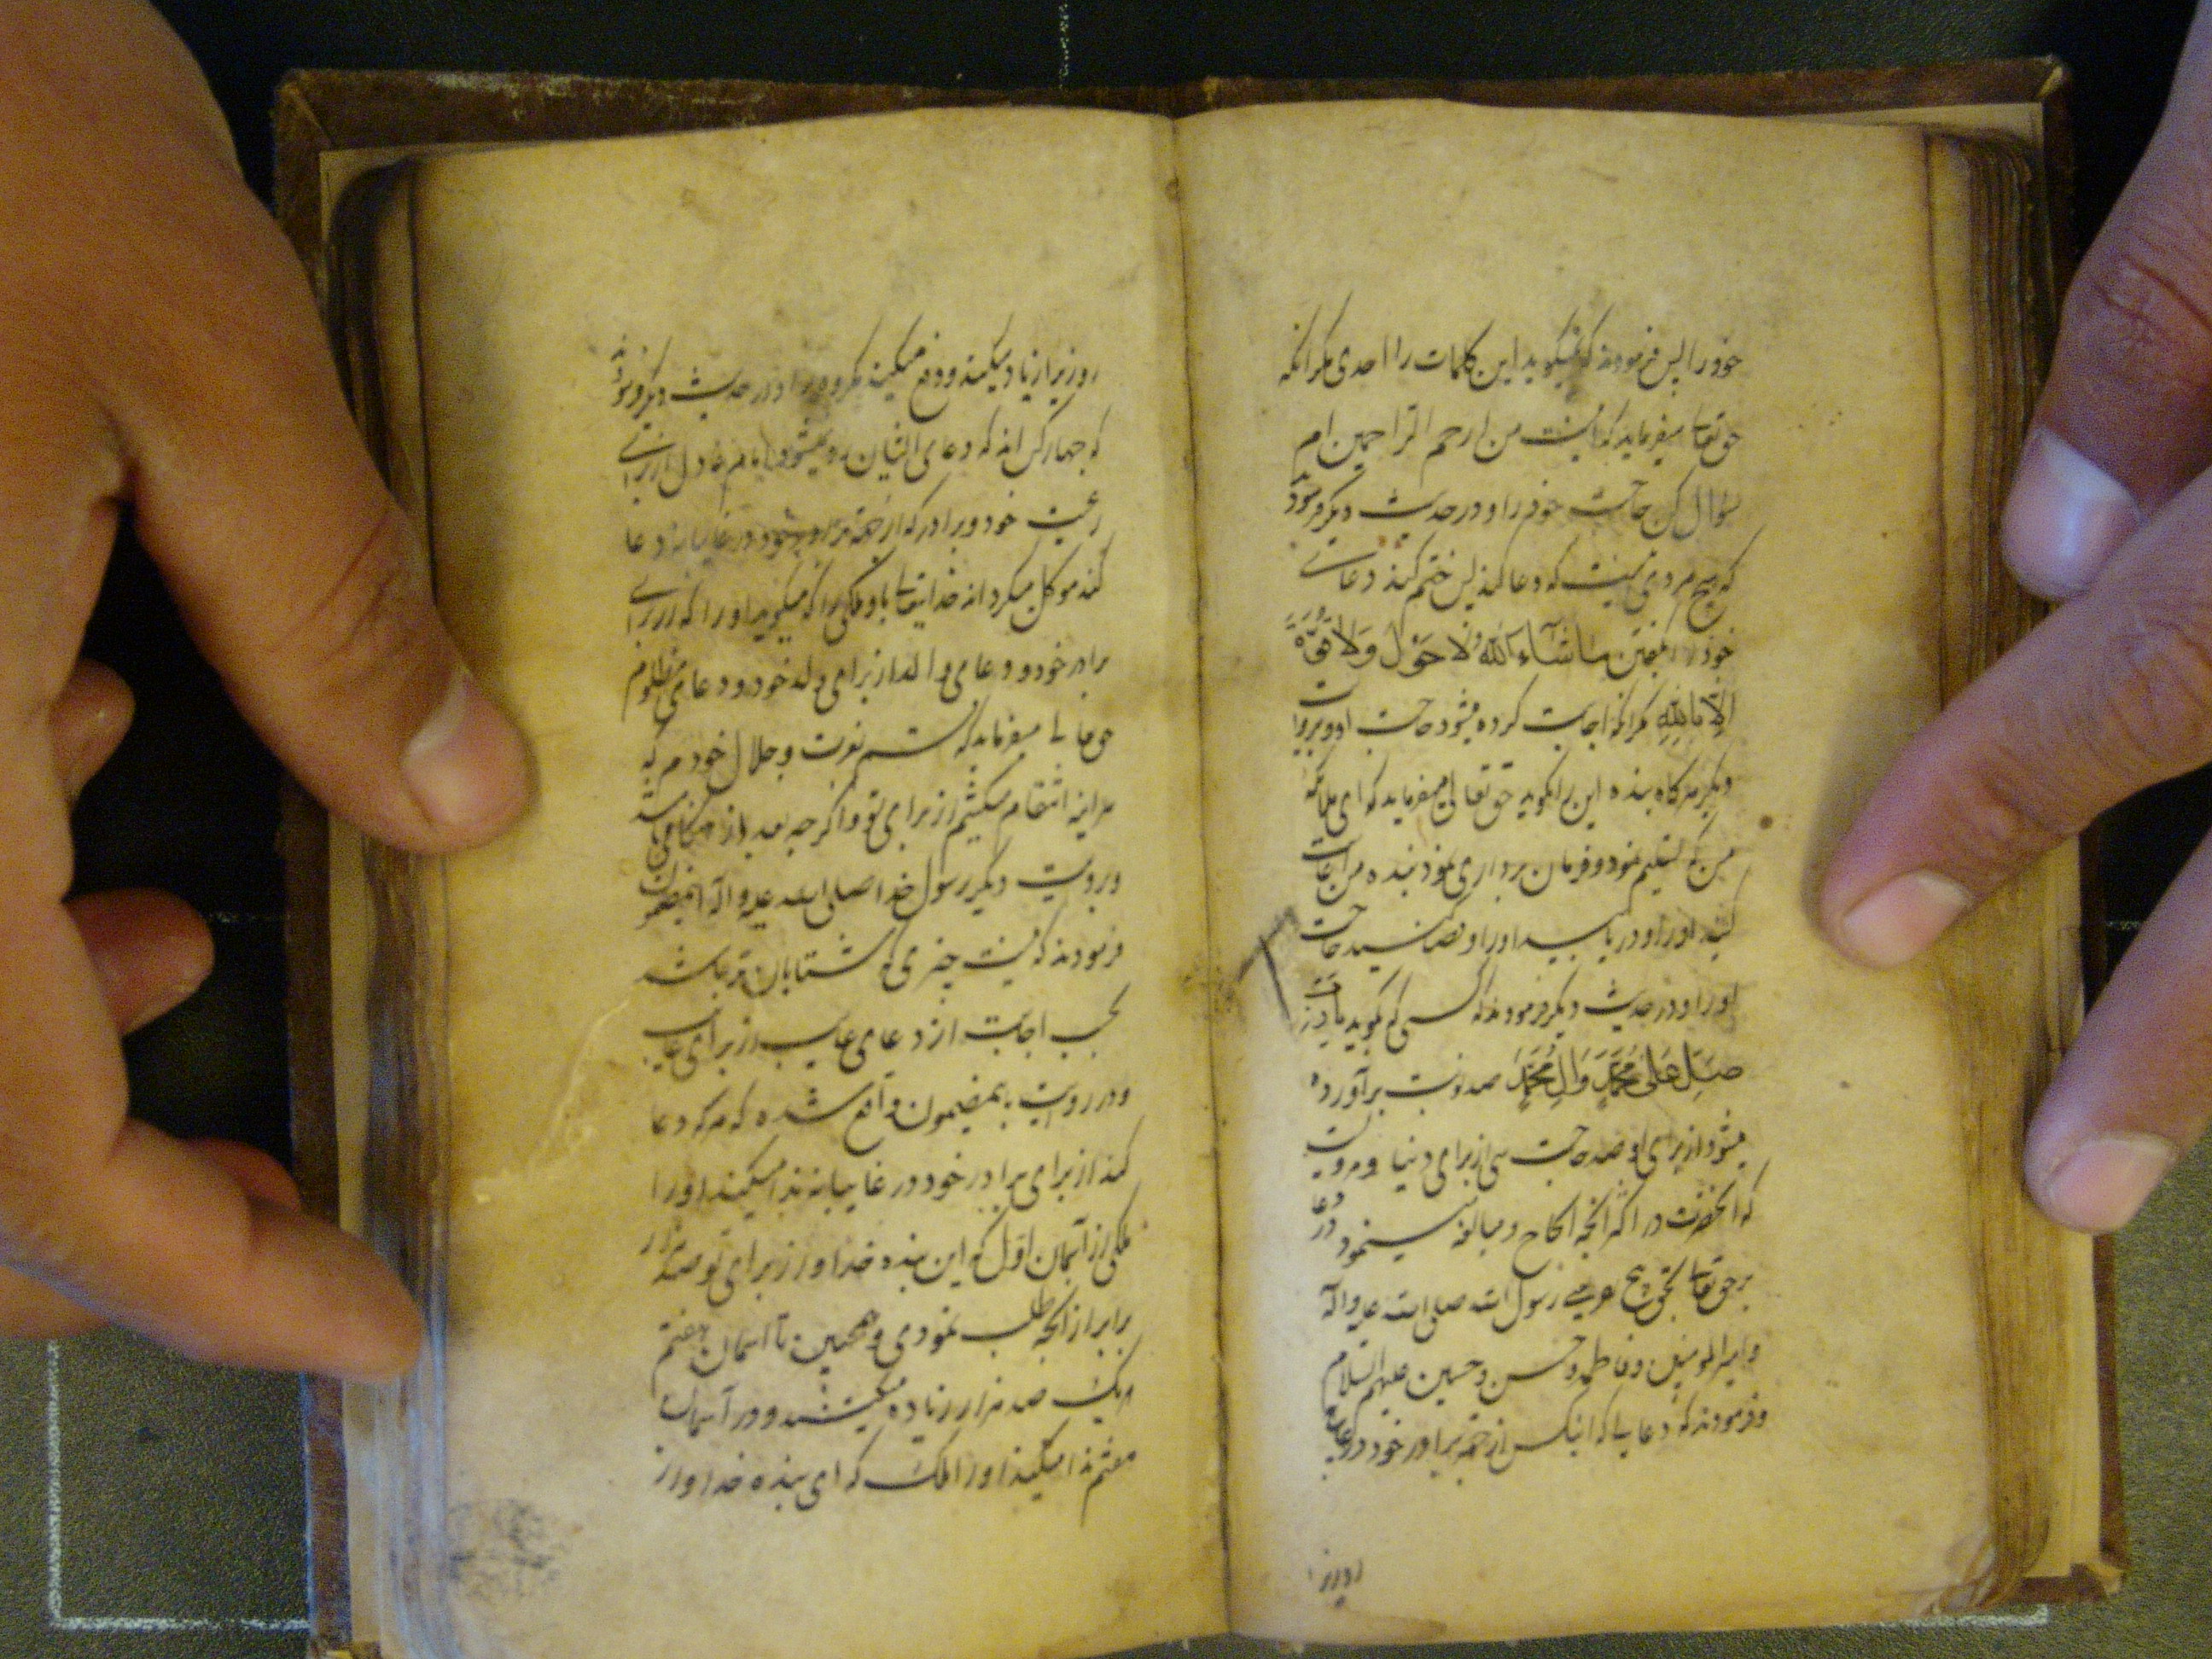 خود را پس فرمودند که نمیگوید این کلمات را احدی مگر آنکه
حق تعالی میفرماید که اینست من ارحم الراحمین ام
سؤال کن حاجت خود را و در حدیث دیگر فرمود
که هیچ مردی نیست که دعا کند پس ختم کند دعای
خود را بگفتن ما شآء الله لا حَوْلَ وَلا قُوَّةَ
اِلّا بِاللهِ مگر آنکه اجابت کرده میشود حاجت او و بروایت
دیگر هرگاه بنده این را بگوید حق تعالی میفرماید که ای ملائکه
من تسلیم نمود و فرمان برداری نمود بنده من اعانت
کنید او را و دریابید او را و قضا کنید حاجت
او را و در حدیث دیگر فرمودند که کسی که بگوید یا رب
صَلِّ عَلی مُحَمَّدٍ وَ الِ مُحَمَّدٍ صد نوبت برآورده
میشود از برای او صد حاجت سی از برای دنیا و مرویست
که آنحضرت در اکثر آنچه الحاح و مبالغه مینمود در دعا
بر حق تعالی بحق پنج رسول الله صلی الله علیه وآله
و امیر المومنین و فاطمه و حسن و حسین علیهم السلام
و فرمودند که دعایی که اینکس از جهة برادر خود در غایبانه
روزی را
روزی را زیاد میکند و دفع میکند مکروه را و در حدیث دیگر فرمودند
که چهار کس اند که دعای ایشان رد نمیشود امام عادل از برای
رعیت خود و برادر که از جهة برادر خود در غایبانه دعا
کند موکل میگرداند خدایتعالی باو ملکی را که میگوید او را که از برای
برادر خود و دعای والد از برای ولد خود و دعای مظلوم
حق تعالی میفرماید که قسم بعزت و جلال خودم که
هر آینه انتقام میکشم از برای تو و اگر چه بعد از هنگامی باشد
و بروایت دیگر رسول خدا صلی الله علیه و آله اینمضمون
فرمودند که نیست چیزی که شتابان تر باشد
بحسب اجابت از دعای غایب از برای غایب
و در روایت بدینمضمون واقع شده که هر که دعا
کند از برای برادر خود در غایبانه ندا میکند او را
ملکی از آسمان اول که ای بنده خدا و از برای تو صد هزار
برابر از آنچه طلب نمودی و همچنین تا آسمان هفتم
هریک صد هزار زیاده میکنند و در آسمان
هفتم ندا میکند او را ملک که ای بنده خدا و از